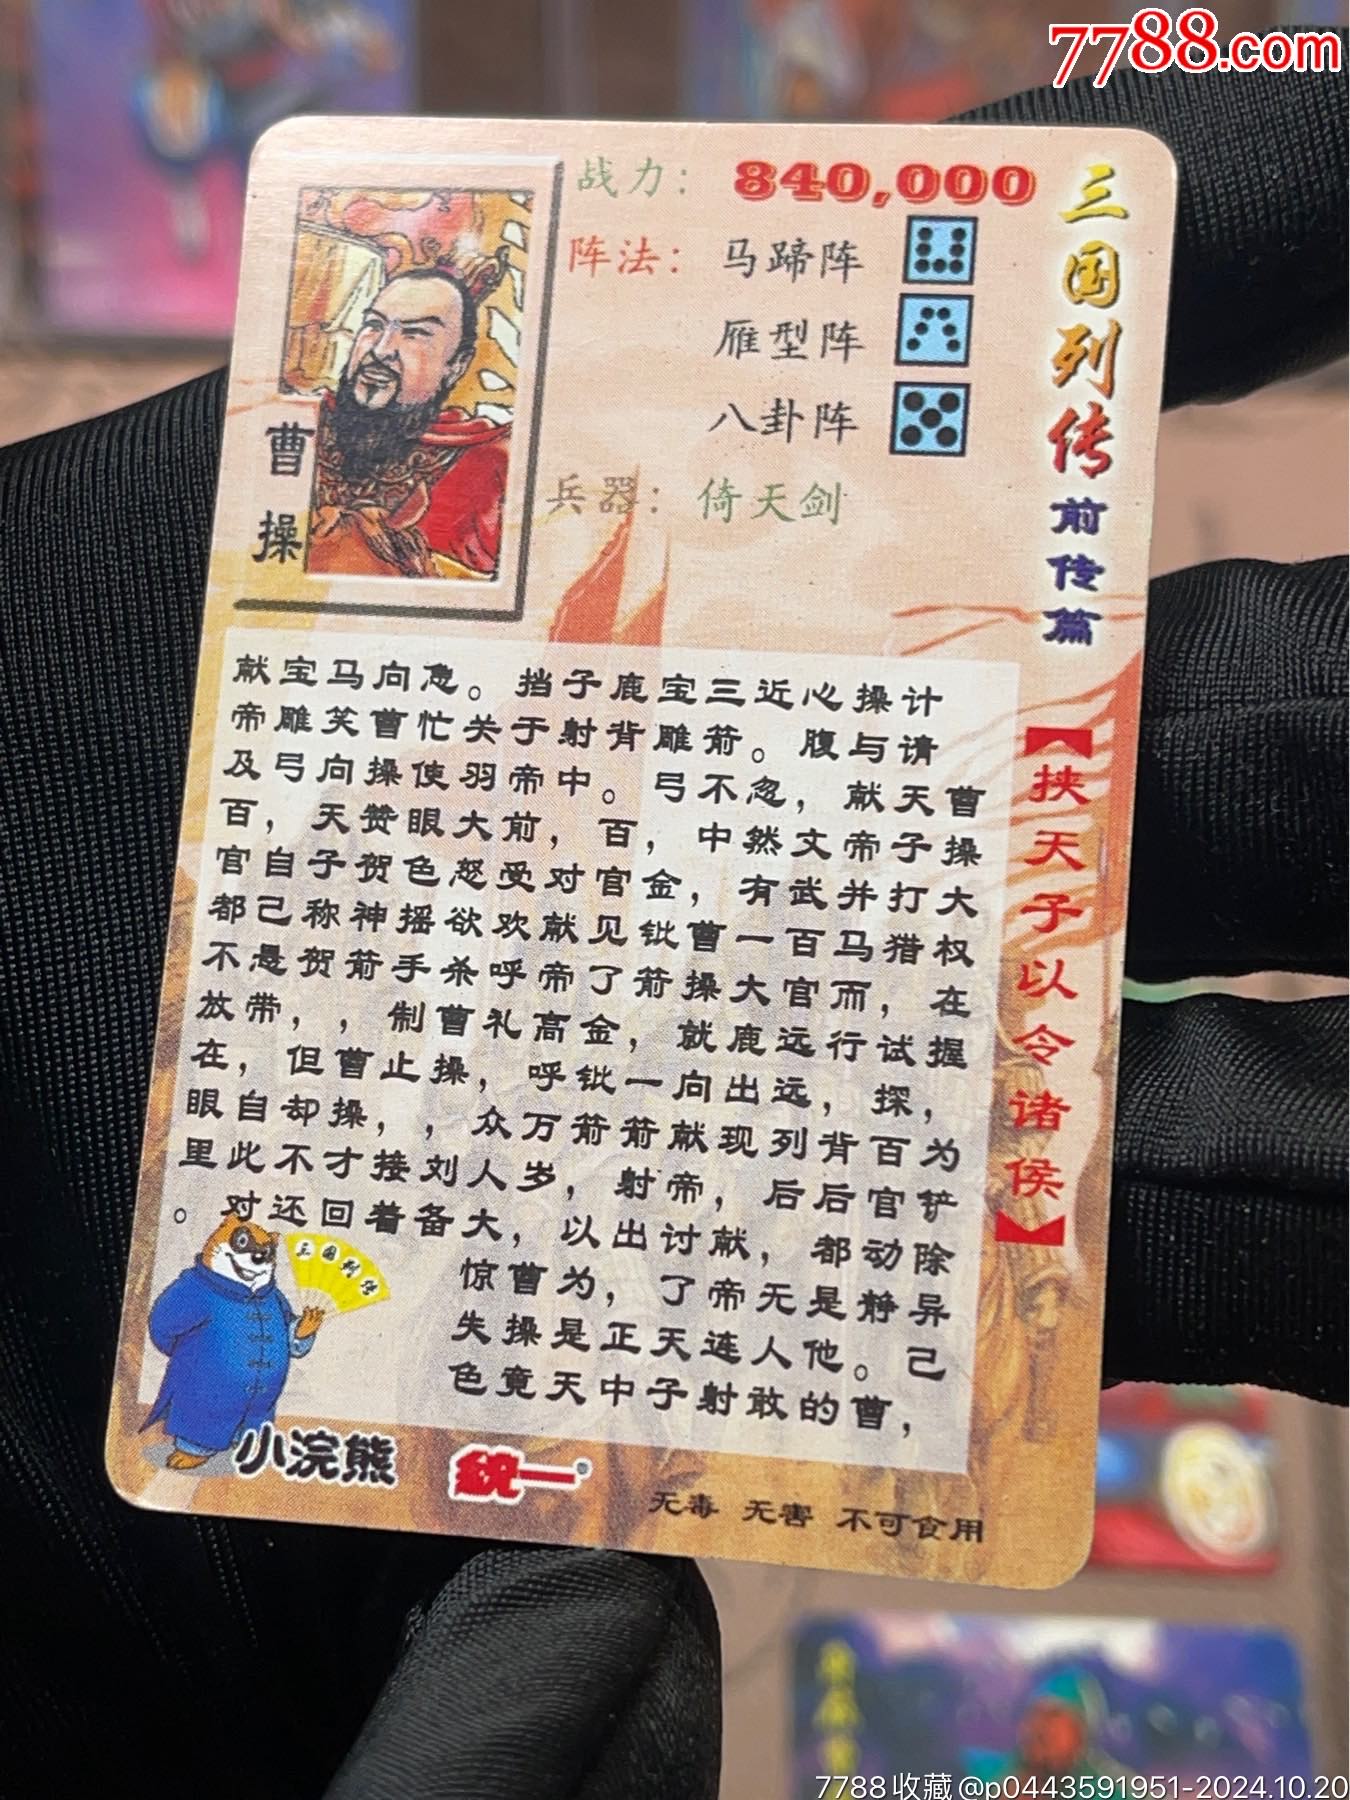 7788.com
三国列传
前传篇
【挟天子以令诸侯】
战力：840,000
阵法：马蹄阵
雁型阵
八卦阵
兵器：倚天剑
曹操
曹操大权在握，为铲除异己，
计请天子打猎，试探百官动静。曹
操与献帝并马而行，背后都是他的
心腹，文武百官远远列后，无人敢
近。忽然有一大鹿出现，献帝连射
三箭不中，曹操就向献帝讨了天子
宝雕弓，金鈚箭，一箭射出，正中
鹿背。百官见了金鈚箭，以为是天
子射中，对献帝高呼万岁，曹操竟
挡于帝前受欢呼礼，众人大惊失色
。关羽大怒欲杀曹操，刘备
急忙使眼色摇手制止，接着
向曹操赞贺神箭，曹操才回
马笑向天子称贺，但却不还
宝雕弓，自己悬带，自此对
献帝及百官都不放在眼里。
三国列传
小浣熊
統一®
无毒 无害 不可食用
7788收藏@p0443591951-2024.10.20